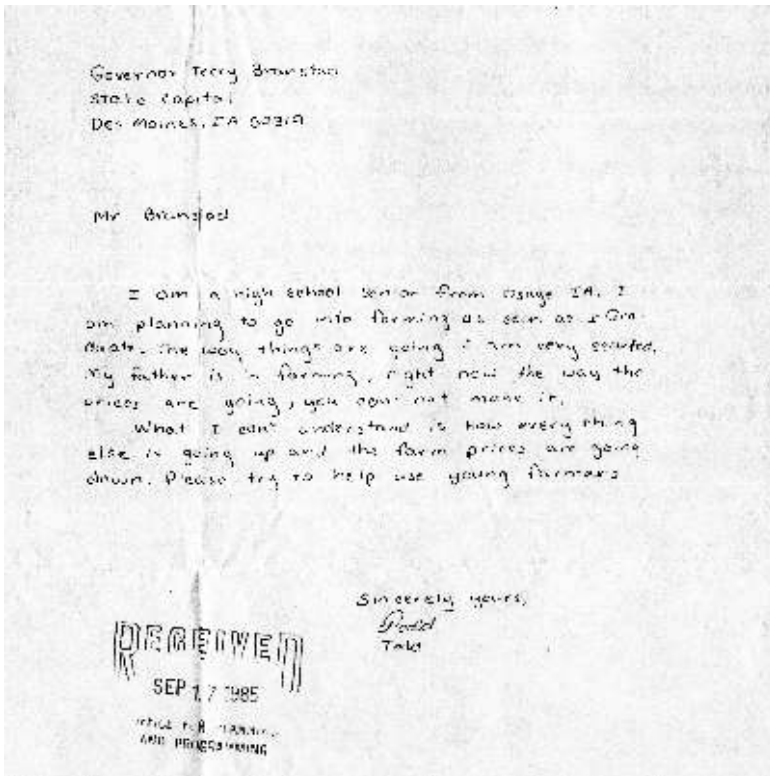 Governor Terry Branstad
State Capital
Des Moines, IA 50319
Mr Branstad
I am a high school senior from Osage IA. I
am planning to go into farming as soon as I Gra-
duate. The way things are going I am very scarfed.
My father is farming, right now the way the
prices are going, you can not make it.
What I can't understand is how every thing
else is going up and the farm prices are going
down. Please try to help use young farmers
Sincerely yours,
Todd
Todd
RECEIVED
SEP 17 1985
OFFICE FOR PLANNING
AND PROGRAMMING